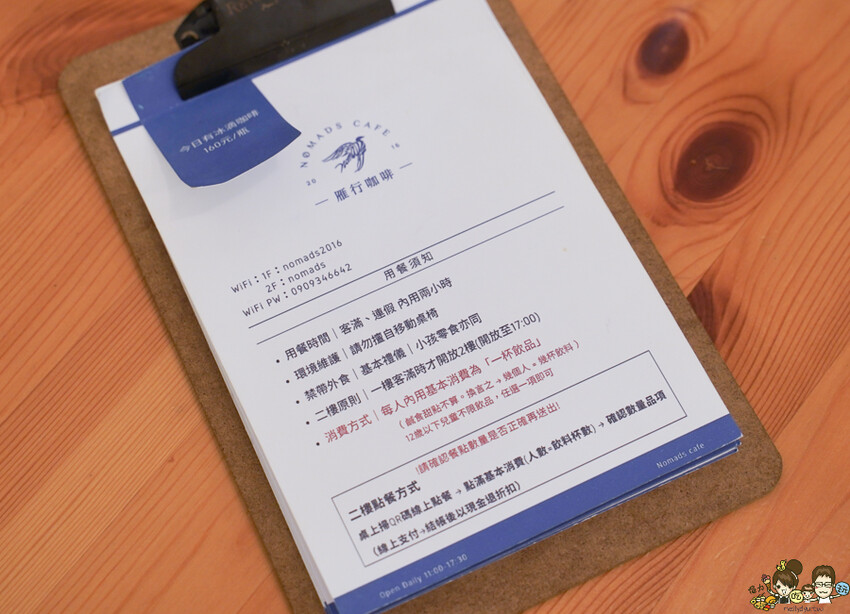 今日有冰滴咖啡
160元/瓶
NØMADS CAFE
20 16
雁行咖啡
WiFi：1F：nomads2016
2F：nomads
WiFi PW：0909346642
用餐須知
• 用餐時間｜客滿、連假 內用兩小時
• 環境維護｜請勿擅自移動桌椅
• 禁帶外食｜基本禮儀｜小孩零食亦同
• 二樓原則｜一樓客滿時才開放2樓(開放至17:00)
• 消費方式｜每人內用基本消費為「一杯飲品」
（鹹食甜點不算。換言之 → 幾個人 = 幾杯飲料）
12歲以下兒童不限飲品，任選一項即可
!請確認餐點數量是否正確再送出!
二樓點餐方式
桌上掃QR碼線上點餐 → 點滿基本消費(人數=飲料杯數) → 確認數量品項
（線上支付→結帳後以現金退折扣）
Nomads cafe
Open Daily 11:00-17:30